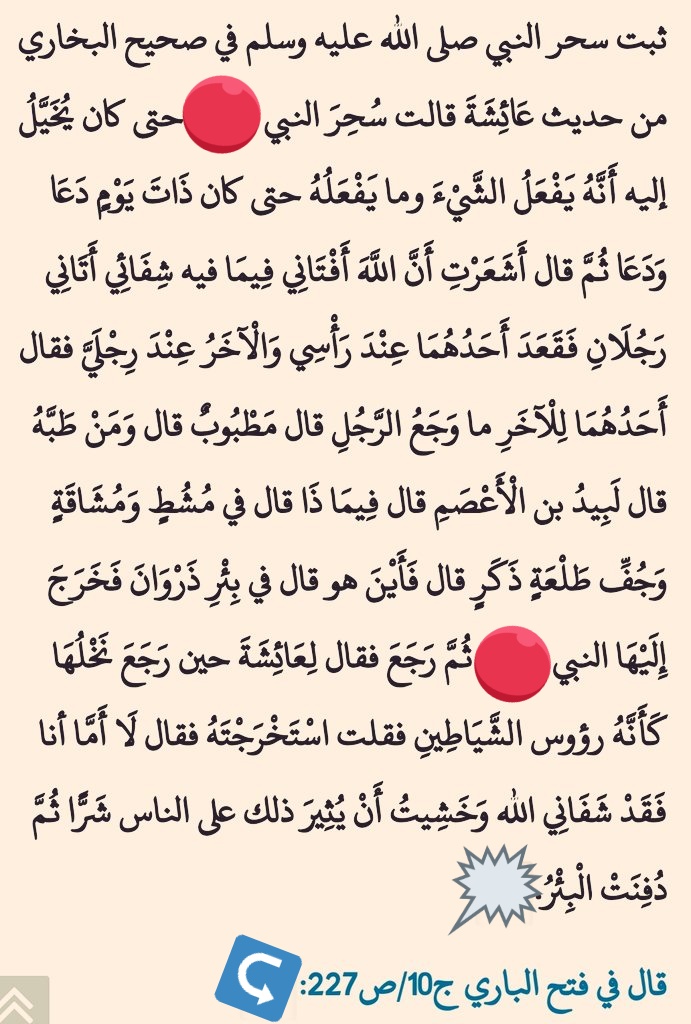 ثبت سحر النبي صلى الله عليه وسلم في صحيح البخاري
من حديث عَائِشَةَ قالت سُحِرَ النبي حتى كان يُخَيَّلُ
إليه أَنَّهُ يَفْعَلُ الشَّيْءَ وما يَفْعَلُهُ حتى كان ذَاتَ يَوْمٍ دَعَا
وَدَعَا ثُمَّ قال أَشَعَرْتِ أَنَّ اللَّهَ أَفْتَانِي فِيمَا فيه شِفَائِي أَتَانِي
رَجُلَانِ فَقَعَدَ أَحَدُهُمَا عِنْدَ رَأْسِي وَالْآخَرُ عِنْدَ رِجْلَيَّ فقال
أَحَدُهُمَا لِلْآخَرِ ما وَجَعُ الرَّجُلِ قال مَطْبُوبٌ قال وَمَنْ طَبَّهُ
قال لَبِيدُ بن الْأَعْصَمِ قال فِيمَا ذَا قال في مُشُطٍ وَمُشَاقَةٍ
وَجُفِّ طَلْعَةٍ ذَكَرٍ قال فَأَيْنَ هو قال في بِئْرِ ذَرْوَانَ فَخَرَجَ
إِلَيْهَا النبي ثُمَّ رَجَعَ فقال لِعَائِشَةَ حين رَجَعَ نَخْلُهَا
كَأَنَّهُ رؤوس الشَّيَاطِينِ فقلت اسْتَخْرَجْتَهُ فقال لَا أَمَّا أنا
فَقَدْ شَفَانِي الله وَخَشِيتُ أَنْ يُثِيرَ ذلك على الناس شَرًّا ثُمَّ
دُفِنَتْ الْبِئْرُ.
قال في فتح الباري ج10/ص227: